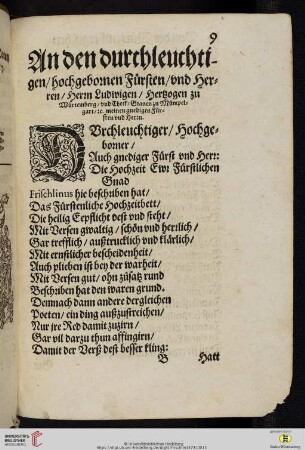 9
An den durchleuchti-
gen/ hochgebornen Fürsten/ vnd Her-
ren/ Herrn Ludwigen/ Hertzogen zu
Würtenberg/ vnd Theck/ Grauen zu Mümpel-
gart/ ꝛc. meinen gnedigen Für-
sten vnd Herrn.
DVrchleuchtiger/ Hochge-
borner/
Auch gnediger Fürst vnd Herr:
Die Hochzeit Ewr Fürstlichen
Gnad
Frischlinus hie beschriben hat/
Das Fürstenliche Hochzeitbett/
Die heilig Eepflicht vest vnd steht/
Mit Versen gwaltig/ schön vnd herrlich/
Gar trefflich/ außtrucklich vnd klärlich/
Mit ernstlicher bescheidenheit/
Auch pliben ist bey der warheit/
Mit Versen gut/ ohn züsatz rund
Beschriben hat den waren grund.
Demnach dann andere dergleichen
Poeten/ ein ding außzustreichen/
Nur jre Red damit zuziren/
Gar vil darzu thun affingirn/
Damit der Verß dest besser kling:
B Hatt
UNIVERSITÄTS-
BIBLIOTHEK
HEIDELBERG